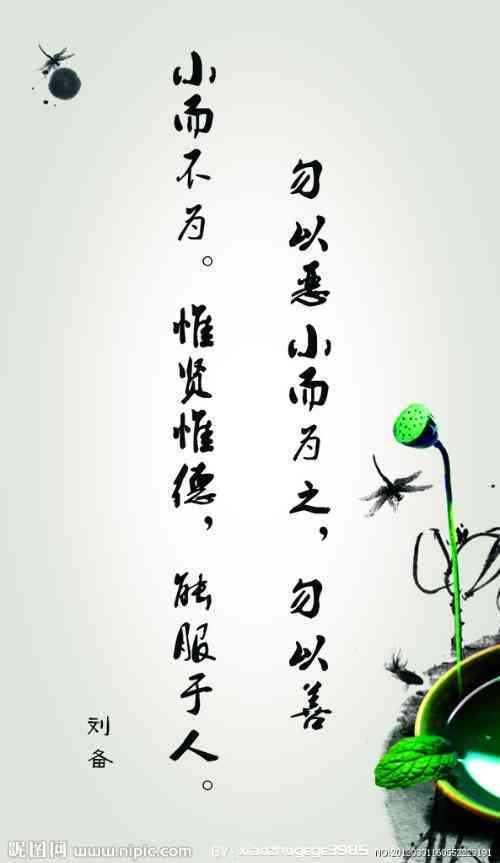 勿以恶小而为之，勿以善
小而不为。惟贤惟德，能服于人。
刘备
昵图网 www.nipic.com
BY:xiaozhugege3985
NO:20120831160552223191